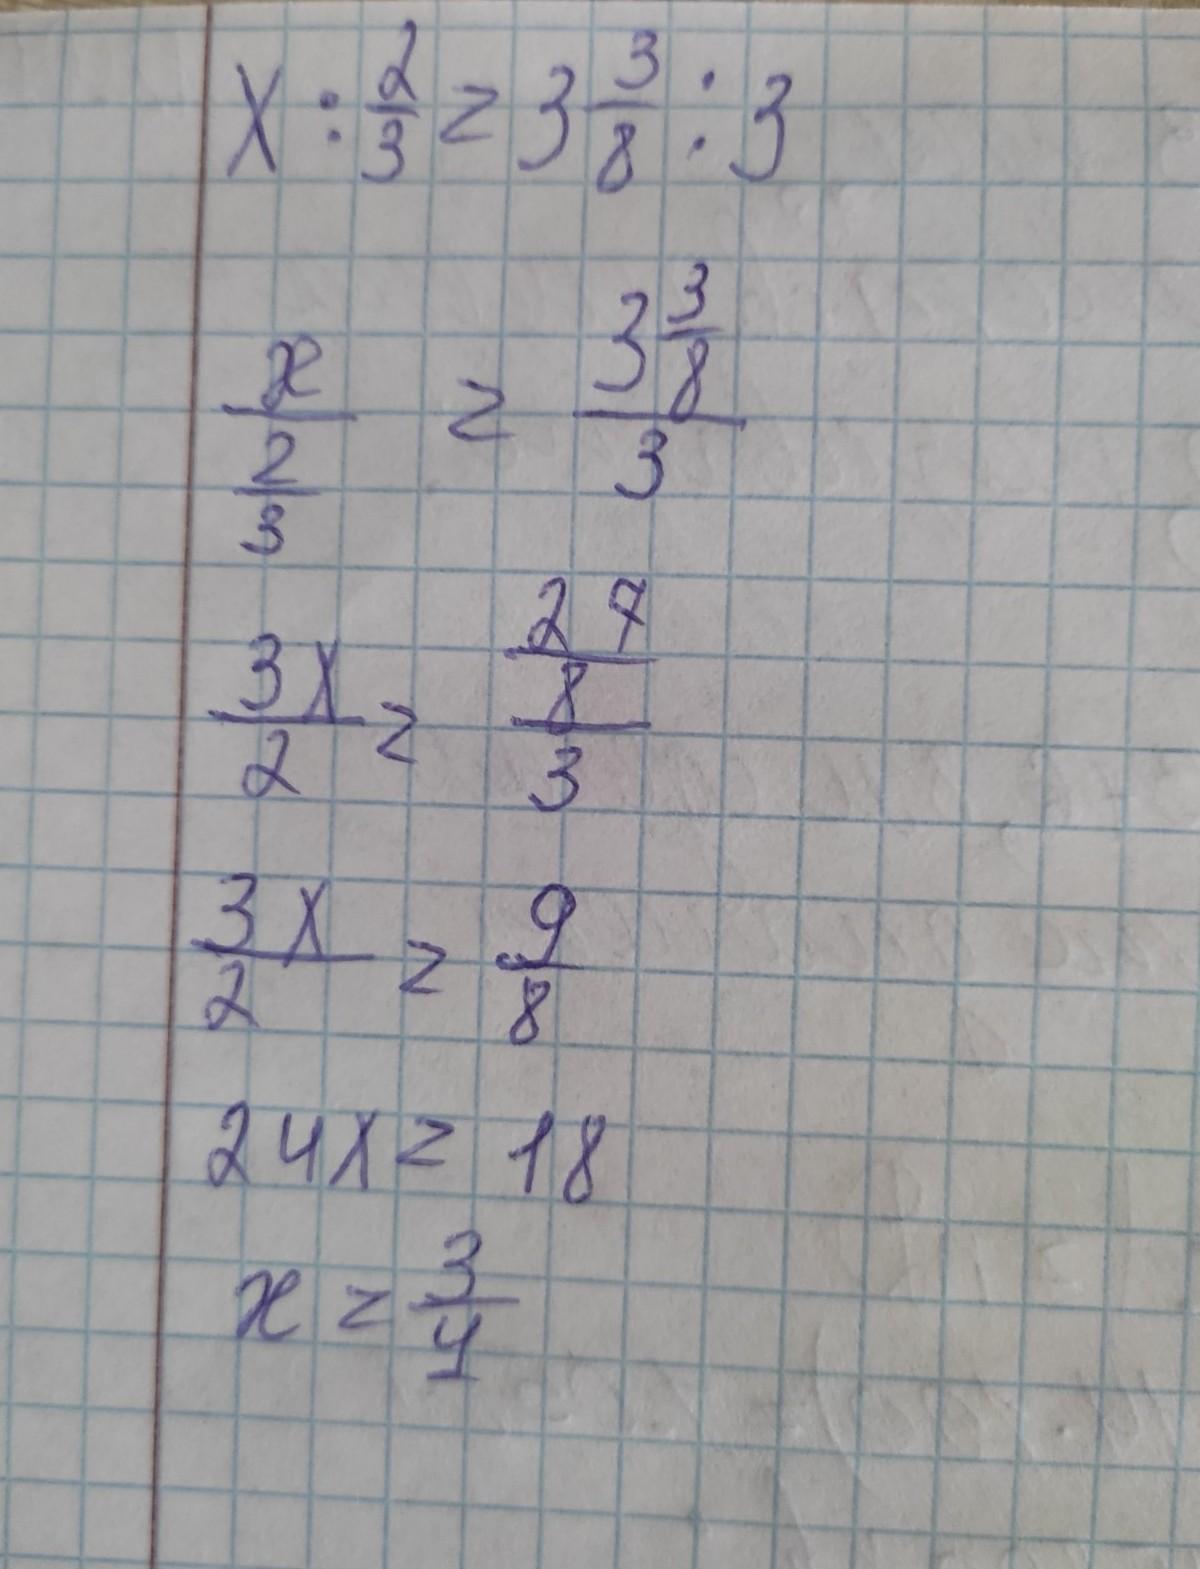 x : 2/3 = 3 3/8 : 3
x / (2/3) = (3 3/8) / 3
3x/2 = (27/8) / 3
3x/2 = 9/8
24x = 18
x = 3/4